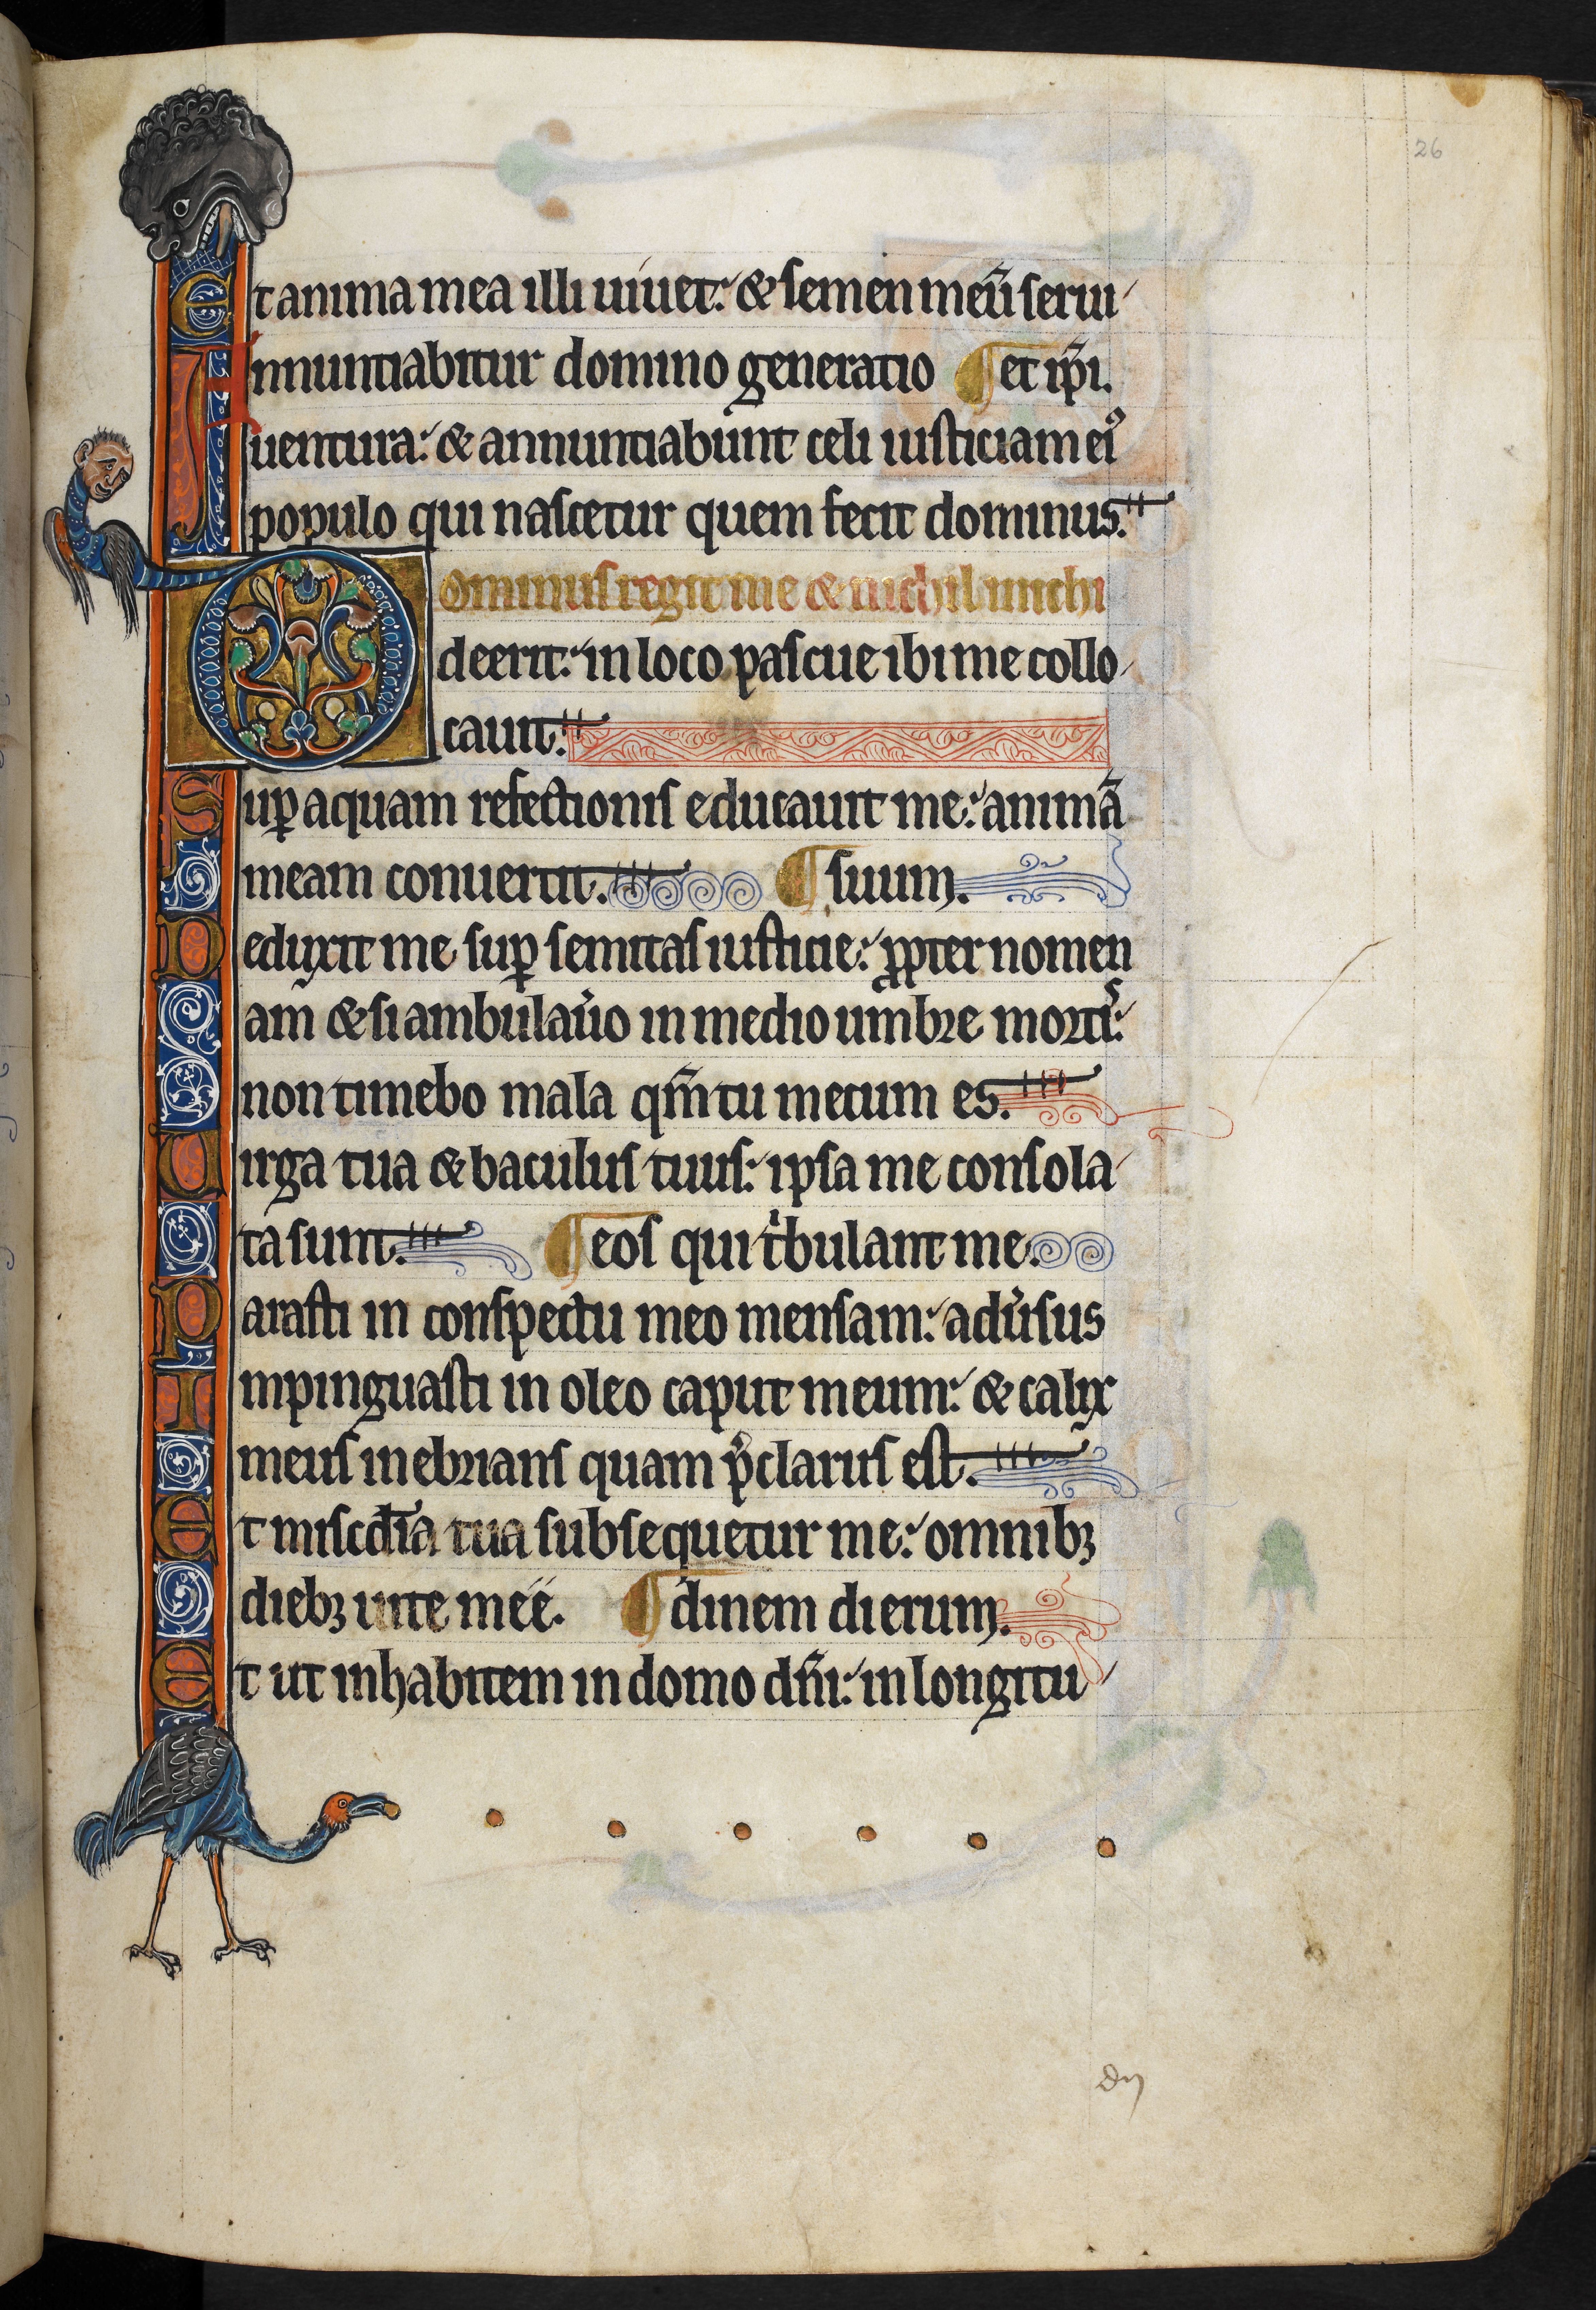 26
Et anima mea illi uiuet: & semen meū serui
Annuntiabitur domino generatio ¶ et ip̄i.
uentura: & annuntiabunt celi iusticiam eiꝰ
populo qui nascetur quem fecit dominus.
Dominus regit me & nichil michi
deerit: in loco pascue ibi me collo
cauit:
Suꝑ aquam refectionis educauit me: animā
meam conuertit. ¶ suum.
Deduxit me suꝑ semitas iusticie: ꝓpter nomen
Nam & si ambulau̓o in medio umbre mortiꝰ:
non timebo mala qm̄ tu mecum es.
Uirga tua & baculus tuus: ipsa me consola
ta sunt. ¶ eos qui tͥbulant me.
Parasti in conspectu meo mensam: adu̓sus
Impinguasti in oleo caput meum: & calix
meus inebrians quam p̓clarus est.
Et misc̄dia tua subsequetur me: omnibꝫ
diebꝫ uite meé. ¶ dinem dierum.
Et ut inhabitem in domo dn̄i: in longitu